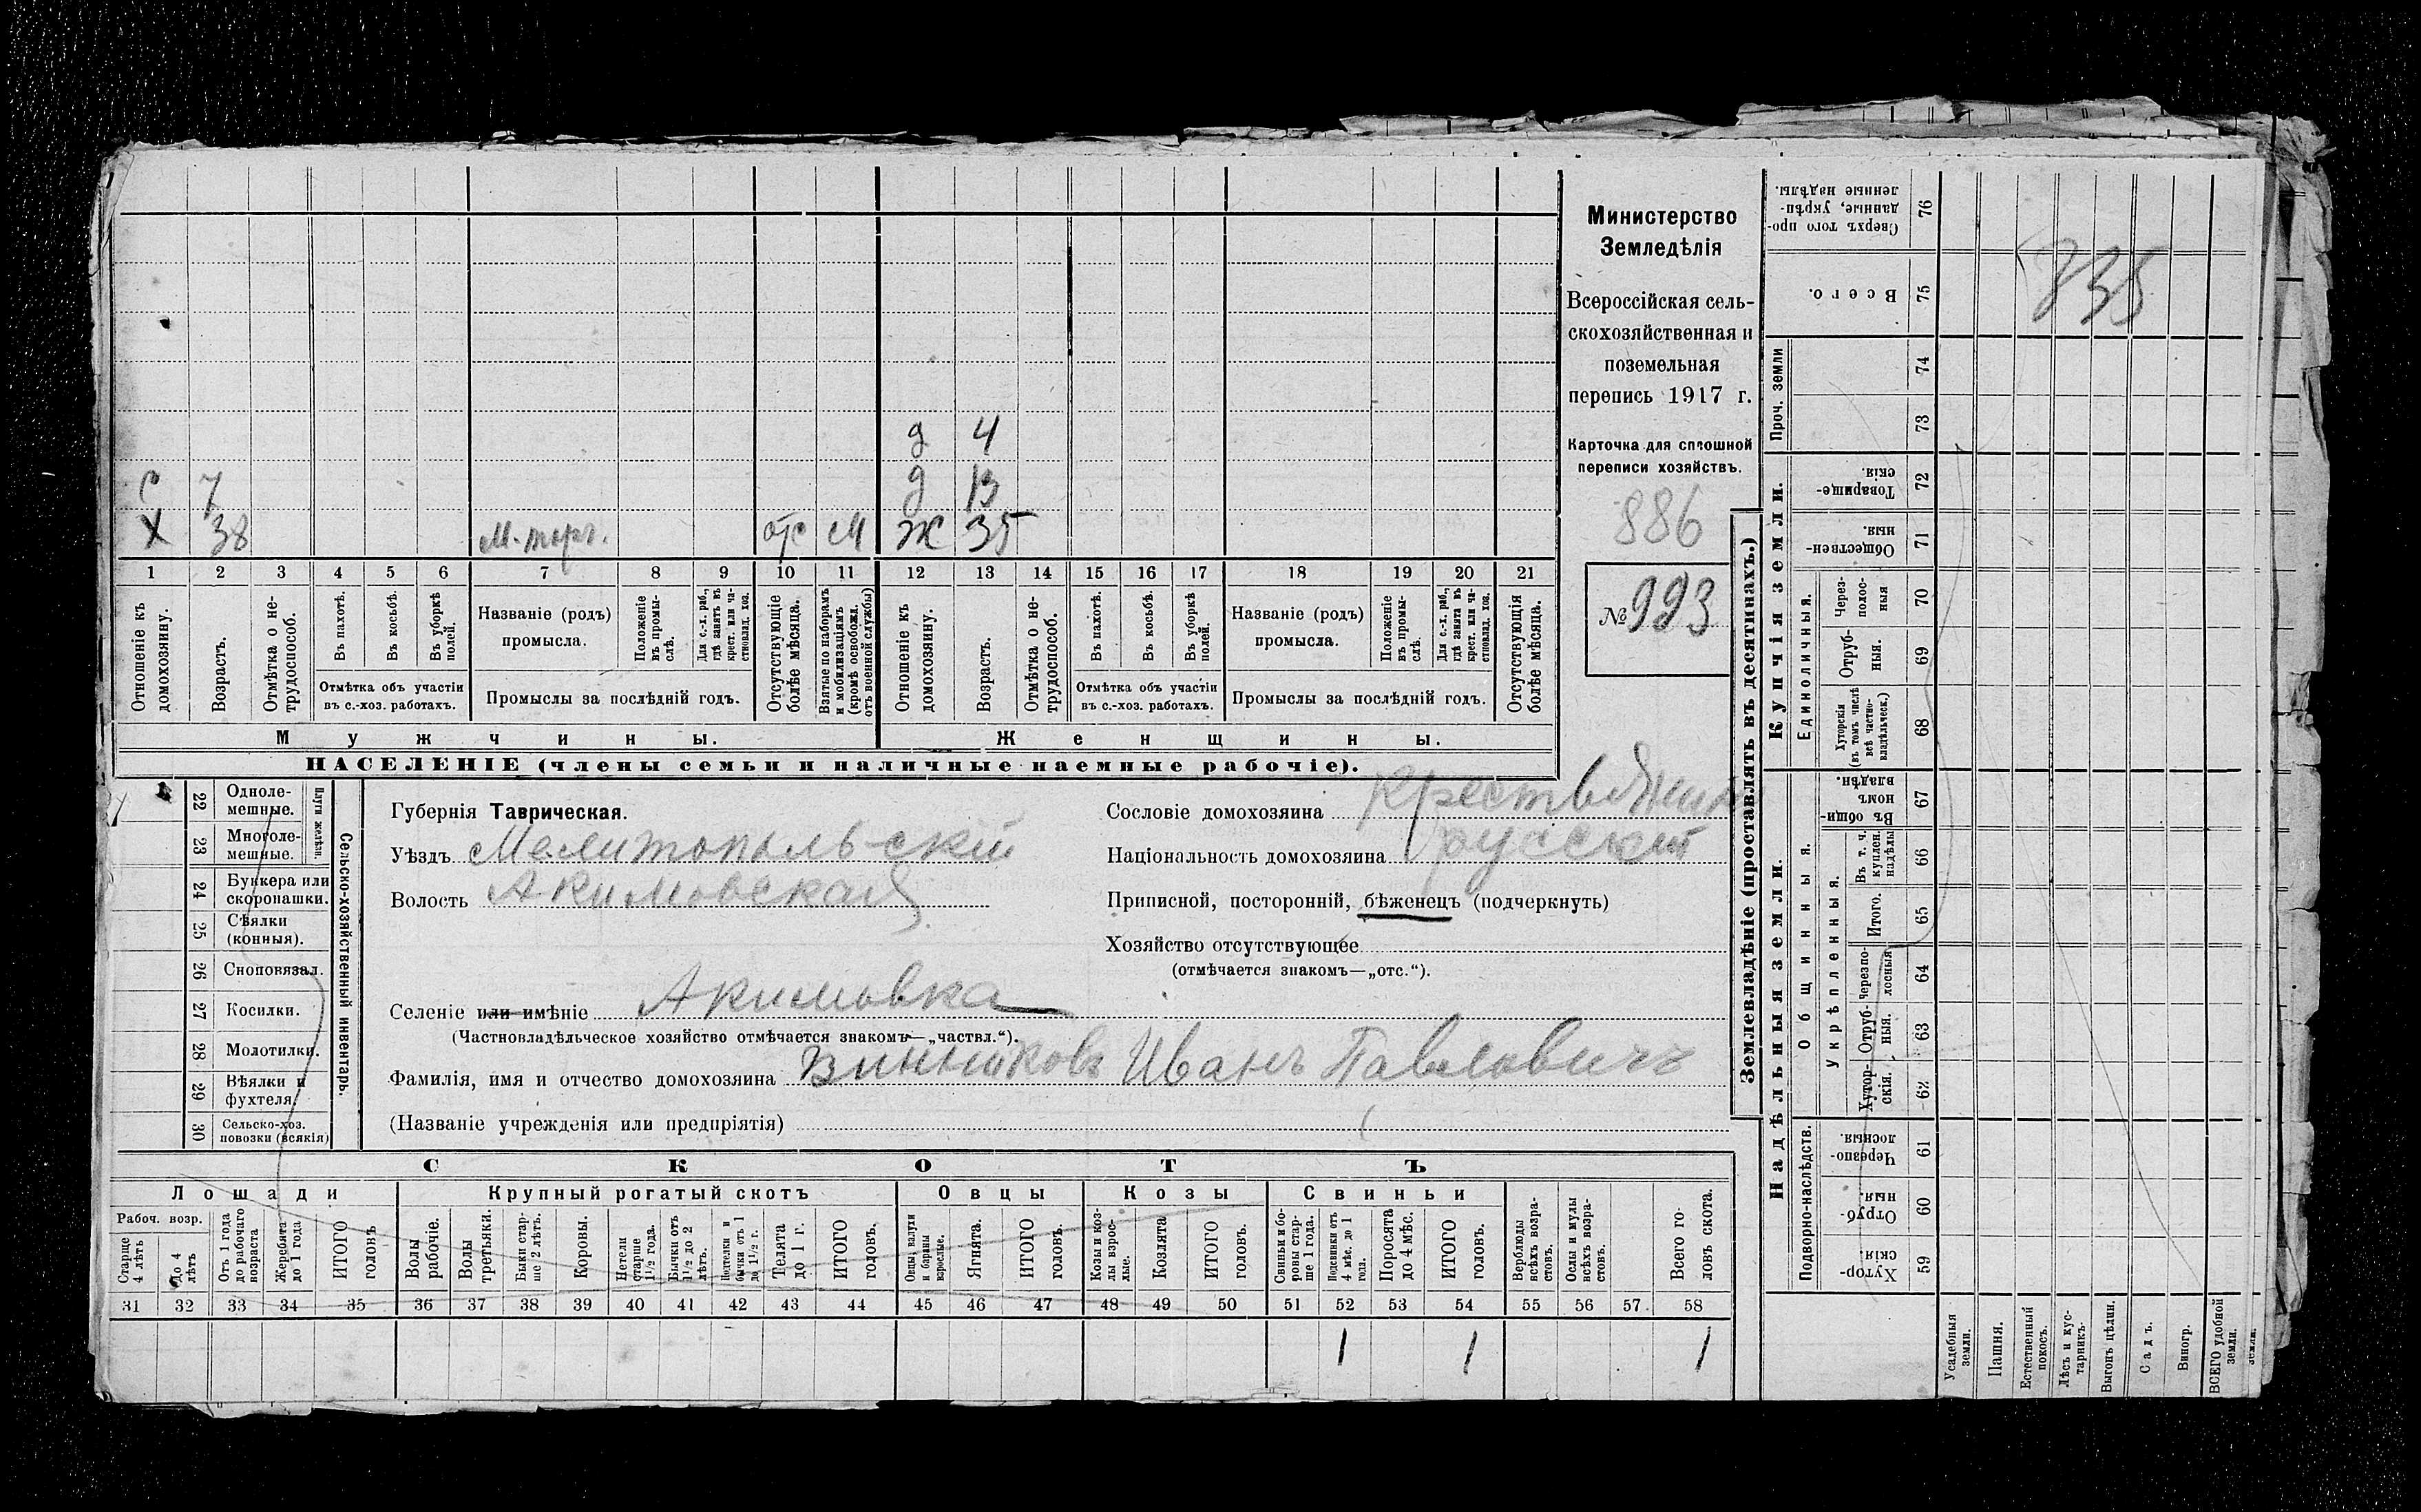 д 4
С 7 д 13
Х 38 М. торг. отс М Ж 35
1 2 3 4 5 6 7 8 9 10 11 12 13 14 15 16 17 18 19 20 21
Отношеніе къ домохозяину.
Возрастъ.
Отмѣтка о не-трудоспособ.
Въ пахотѣ.
Въ косьбѣ.
Въ уборкѣ полей.
Отмѣтка объ участіи
въ с.-хоз. работахъ.
Названіе (родъ)
промысла.
Положеніе въ промы-слѣ.
Для с.-х. раб., гдѣ занятъ въ крест. или ча-стновлад. хоз.
Промыслы за послѣдній годъ.
Отсутствующіе болѣе мѣсяца.
Взятые по наборамъ и мобилизаціямъ (кромѣ освобожд. отъ военной службы)
Отношеніе къ домохозяину.
Возрастъ.
Отмѣтка о не-трудоспособ.
Въ пахотѣ.
Въ косьбѣ.
Въ уборкѣ полей.
Отмѣтка объ участіи
въ с.-хоз. работахъ.
Названіе (родъ)
промысла.
Положеніе въ промы-слѣ.
Для с.-х. раб., гдѣ занята въ крест. или ча-стновлад. хоз.
Промыслы за послѣдній годъ.
Отсутствующія болѣе мѣсяца.
Мужчины.
Женщины.
НАСЕЛЕНІЕ (члены семьи и наличные наемные рабочіе).
Министерство
Земледѣлія
Всероссійская сель-
скохозяйственная и
поземельная
перепись 1917 г.
Карточка для сплошной
переписи хозяйствъ.
886
№ 993
22 Одноле-мешные.
23 Многоле-мешные.
Плуги желѣзн.
24 Буккера или скоропашки.
25 Сѣялки (конныя).
26 Сноповязал.
27 Косилки.
28 Молотилки.
29 Вѣялки и фухтеля.
30 Сельско-хоз. повозки (всякія)
Сельско-хозяйственный инвентарь.
Губернія Таврическая.
Уѣздъ Мелитопольскій
Волость Акимовская
Сословіе домохозяина Крестьянин
Національность домохозяина русский
Приписной, посторонній, бѣженецъ (подчеркнуть)
Хозяйство отсутствующее
(отмѣчается знакомъ—„отс.“).
Селеніе или имѣніе Акимовка
(Частновладѣльческое хозяйство отмѣчается знакомъ—„частвл.“).
Фамилія, имя и отчество домохозяина Винниковъ Иванъ Павловичъ
(Названіе учрежденія или предпріятія)
СКОТЪ
Лошади Крупный рогатый скотъ Овцы Козы Свиньи
Рабоч. возр.
Старше 4 лѣтъ
До 4 лѣтъ
Отъ 1 года до рабочаго возраста
Жеребята до 1 года
ИТОГО головъ
Волы рабочіе.
Волы третьяки.
Быки стар-ше 2 лѣтъ.
Коровы.
Нетели старше 1 1/2 года.
Бычки отъ 1 1/2 до 2 лѣтъ.
Подтелки и бычки отъ 1 до 1 1/2 г.
Телята до 1 г.
ИТОГО головъ.
Овцы, валухи и бараны взрослые.
Ягнята.
ИТОГО головъ.
Козы и коз-лы взрос-лые.
Козлята
ИТОГО головъ.
Свиньи и бо-ровы стар-ше 1 года.
Подсвинки отъ 4 мѣс. до 1 года.
Поросята до 4 мѣс.
ИТОГО головъ.
Верблюды всѣхъ возра-стовъ.
Ослы и мулы всѣхъ возра-стовъ.
Всего го-ловъ скота.
31 32 33 34 35 36 37 38 39 40 41 42 43 44 45 46 47 48 49 50 51 52 53 54 55 56 57 58
1 1 1
Землевладѣніе (проставлять въ десятинахъ.)
Купчія земли.
Надѣльныя земли.
Проч. земли
Единоличныя.
Общинныя.
Укрѣпленныя.
Подворно-наслѣдств.
Сверхъ того про-данные, укрѣп-ленные надѣлы. 76
Всего. 75
74
73
Товарище-скія. 72
Обществен-ныя. 71
Через-полос-ныя 70
Отруб-ныя. 69
Хуторскія (въ томъ числѣ всѣ частно-владѣльческ.) 68
Въ общин-номъ владѣн. 67
Въ т. ч. куплен. надѣлы 66
Итого. 65
Черезпо-лосныя 64
Отруб-ныя. 63
Хутор-скія. 62
Черезпо-лосныя. 61
Отруб-ныя. 60
Хутор-скія. 59
835
Усадебныя земли.
Пашня.
Естественный покосъ.
Лѣсъ и кус-тарникъ.
Выгонъ цѣлин.
Садъ.
Виногр.
ВСЕГО удобной земли.